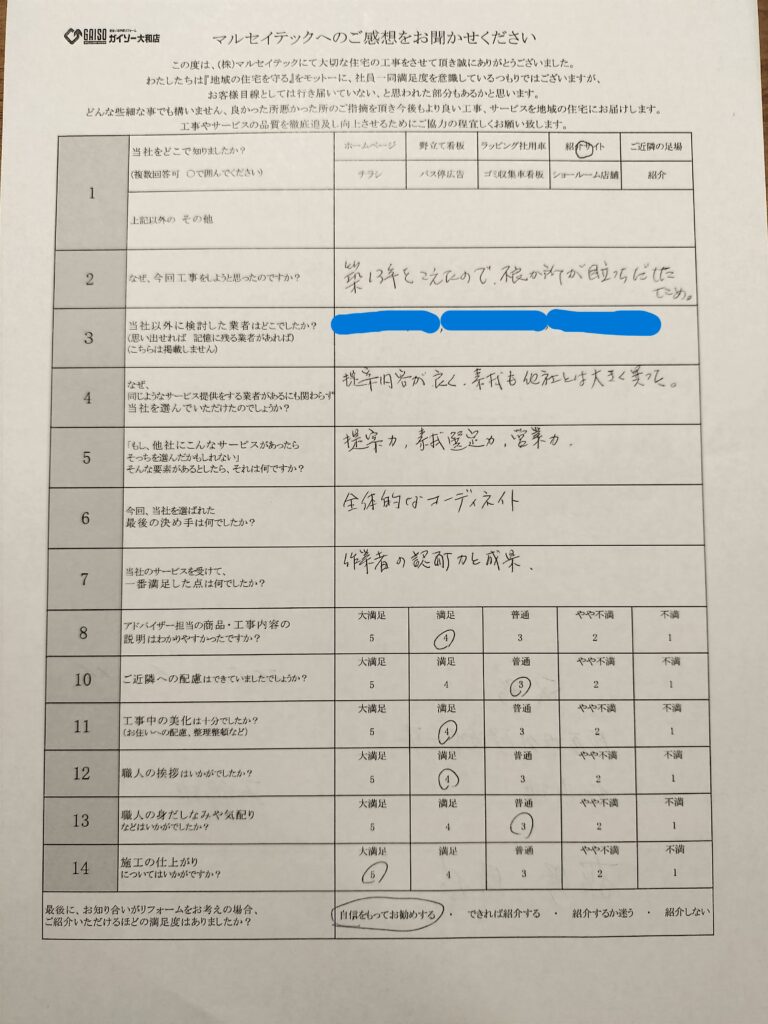 GAISO
ガイソー大和店
マルセイテックへのご感想をお聞かせください
この度は、(株)マルセイテックにて大切な住宅の工事をさせて頂き誠にありがとうございました。
わたしたちは『地域の住宅を守る』をモットーに、社員一同満足度を意識しているつもりではございますが、
お客様目線としては行き届いていない、と思われた部分もあるかと思います。
どんな些細な事でも構いません、良かった所悪かった所のご指摘を頂き今後もより良い工事、サービスを地域の住宅にお届けします。
工事やサービスの品質を徹底追及し向上させるためにご協力の程宜しくお願い致します。
1
当社をどこで知りましたか?
(複数回答可 〇で囲んでください)
ホームページ 野立て看板 ラッピング社用車 紹介サイト ご近隣の足場
チラシ バス停広告 ゴミ収集車看板 ショールーム店舗 紹介
上記以外の その他
2
なぜ、今回工事をしようと思ったのですか?
築13年をこえたので、不良か所が目立ちだした
ため。
3
当社以外に検討した業者はどこでしたか?
(思い出せれば 記憶に残る業者があれば)
(こちらは掲載しません)
4
なぜ、
同じようなサービス提供をする業者があるにも関わらず
当社を選んでいただけたのでしょうか?
提案内容が良く、素材も他社とは大きく異った。
5
「もし、他社にこんなサービスがあったら
そっちを選んだかもしれない」
そんな要素があるとしたら、それは何ですか?
提案力、素材選定力、営業力.
6
今回、当社を選ばれた
最後の決め手は何でしたか?
全体的なコーディネイト
7
当社のサービスを受けて、
一番満足した点は何でしたか?
作業者の認耐力と成果.
8
アドバイザー担当の商品・工事内容の
説明はわかりやすかったですか?
大満足 満足 普通 やや不満 不満
5 4 3 2 1
10
ご近隣への配慮はできていましたでしょうか?
大満足 満足 普通 やや不満 不満
5 4 3 2 1
11
工事中の美化は十分でしたか?
(お住いへの配慮、整理整頓など)
大満足 満足 普通 やや不満 不満
5 4 3 2 1
12
職人の挨拶はいかがでしたか?
大満足 満足 普通 やや不満 不満
5 4 3 2 1
13
職人の身だしなみや気配り
などはいかがでしたか?
大満足 満足 普通 やや不満 不満
5 4 3 2 1
14
施工の仕上がり
についてはいかがですか?
大満足 満足 普通 やや不満 不満
5 4 3 2 1
最後に、お知り合いがリフォームをお考えの場合、
ご紹介いただけるほどの満足度はありましたか?
自信をもってお勧めする ・ できれば紹介する ・ 紹介するか迷う ・ 紹介しない